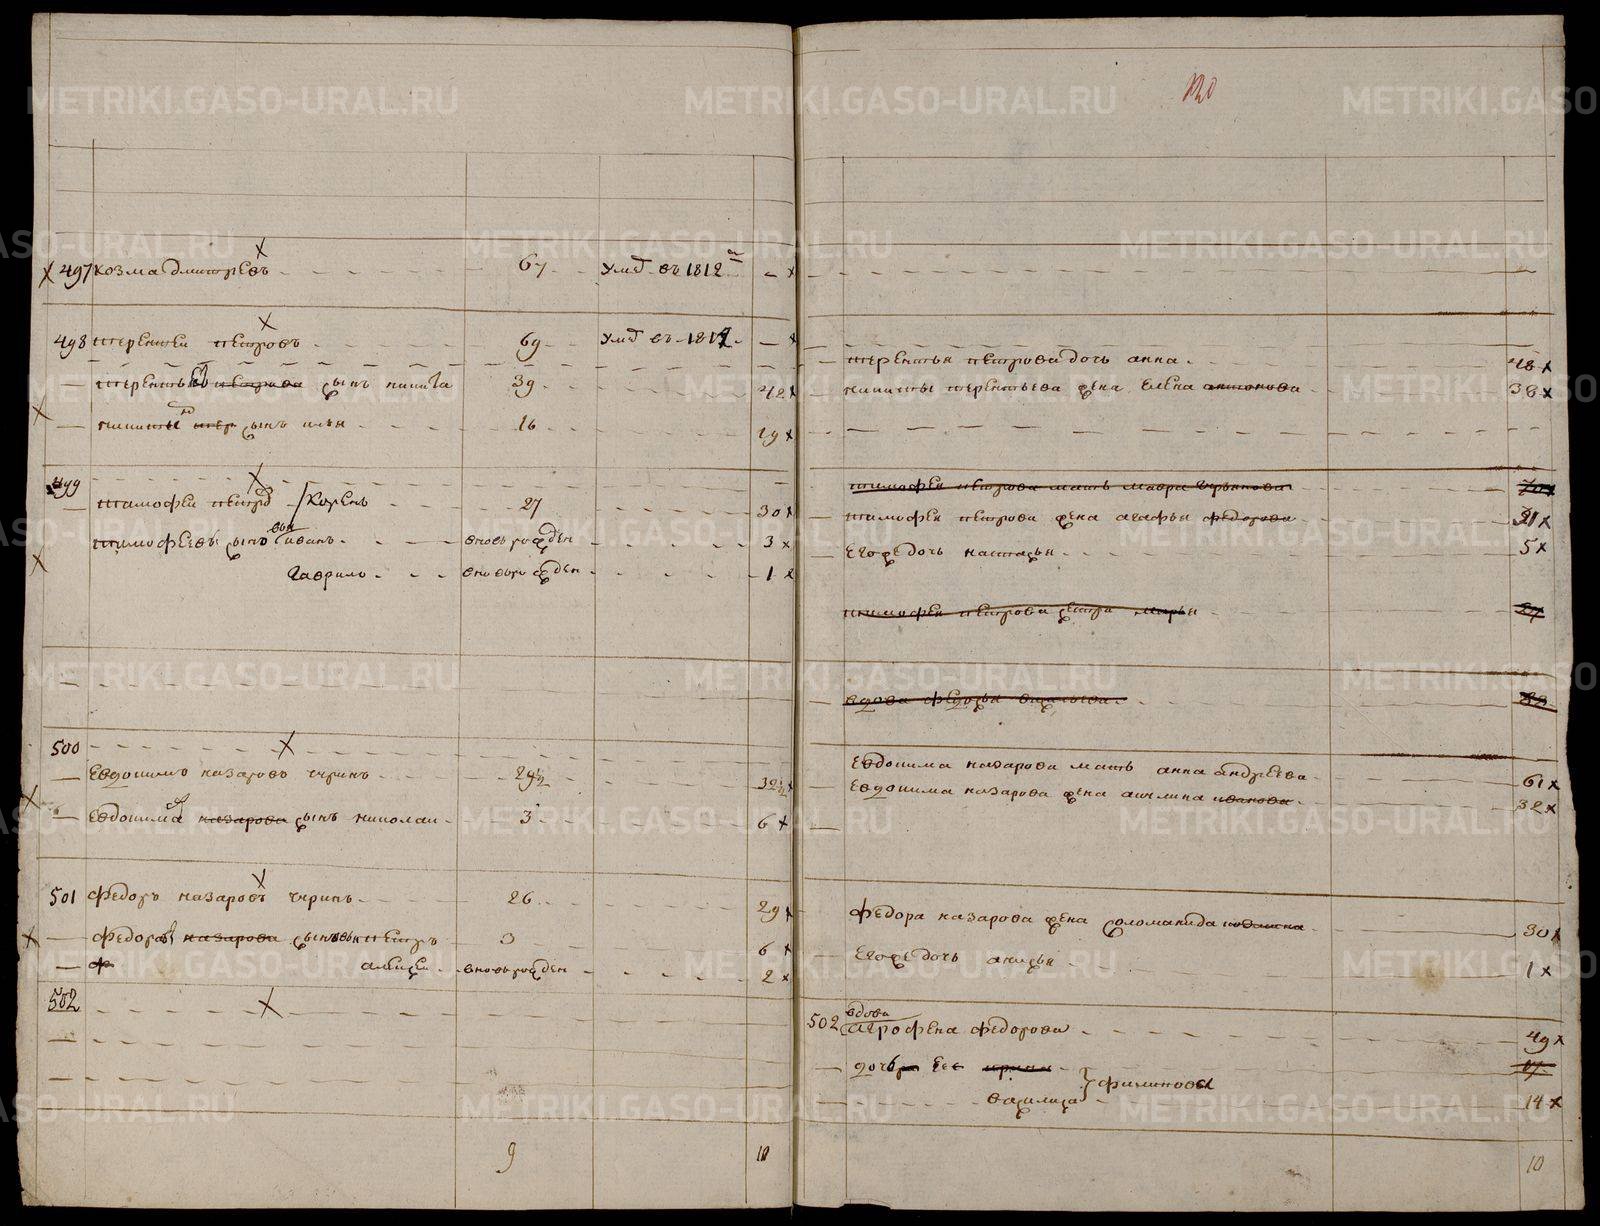 120
497 козма дмитревъ 67 умд въ 1812
498 терентеи петровъ 69 умд въ 1812
терентьевъ петрова сынъ никита 39 42
никиты тер сынъ илья 16 19
499
тимофеи петров корель 27 30
тимофеевы сыновья иванъ вновьрожден 3
гаврило вновьрожден 1
500
евдокимъ назаровъ чиринъ 29½ 32½
евдокима назарова сынъ николаи 3 6
501 федоръ назаровъ чиринъ 26 29
федора назарова сыновья петръ 3 6
алексеи вновьрожден 2
502
9 11
терентья петрова дочь анна 48
никиты терентьева жена елена антонова 38
тимофея петрова мать мавра
тимофея петрова жена агафья федорова 31
егоже дочь настасья 5
тимофея петрова сестра марья
вдова федосья васильева
евдокима назарова мать анна андреева 61
евдокима назарова жена акилина иванова 32
федора назарова жена соломанида 30
егоже дочь анисья 1
502 вдова агрофена федорова 49
дочь ее ирина
василиса филиповы 14
10
METRIKI.GASO-URAL.RU